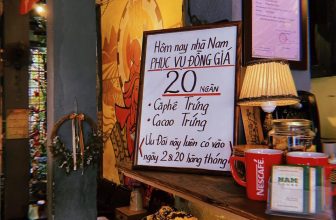 Hôm nay nhà Nam
PHỤC VỤ ĐỒNG GIÁ
20
NGÀN
• Càphê Trứng
• Cacao Trứng
Ưu Đãi này luôn có vào
ngày 2 & 20 hàng tháng
NESCAFÉ
NAM